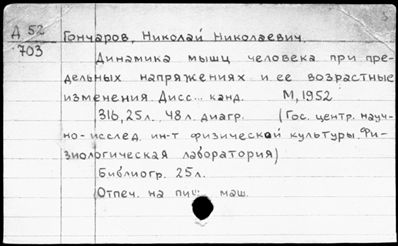 Д 52
703
Гончаров, Николай Николаевич.
Динамика мышц человека при пре-
дельных напряжениях и ее возрастные
изменения. Дисс... канд. М, 1952
316, 25л. 48л. диагр. (Гос. центр. науч-
но-исслед. ин-т физической культуры. Фи-
зиологическая лаборатория)
Библиогр. 25л.
(Отпеч. на пиш. маш.